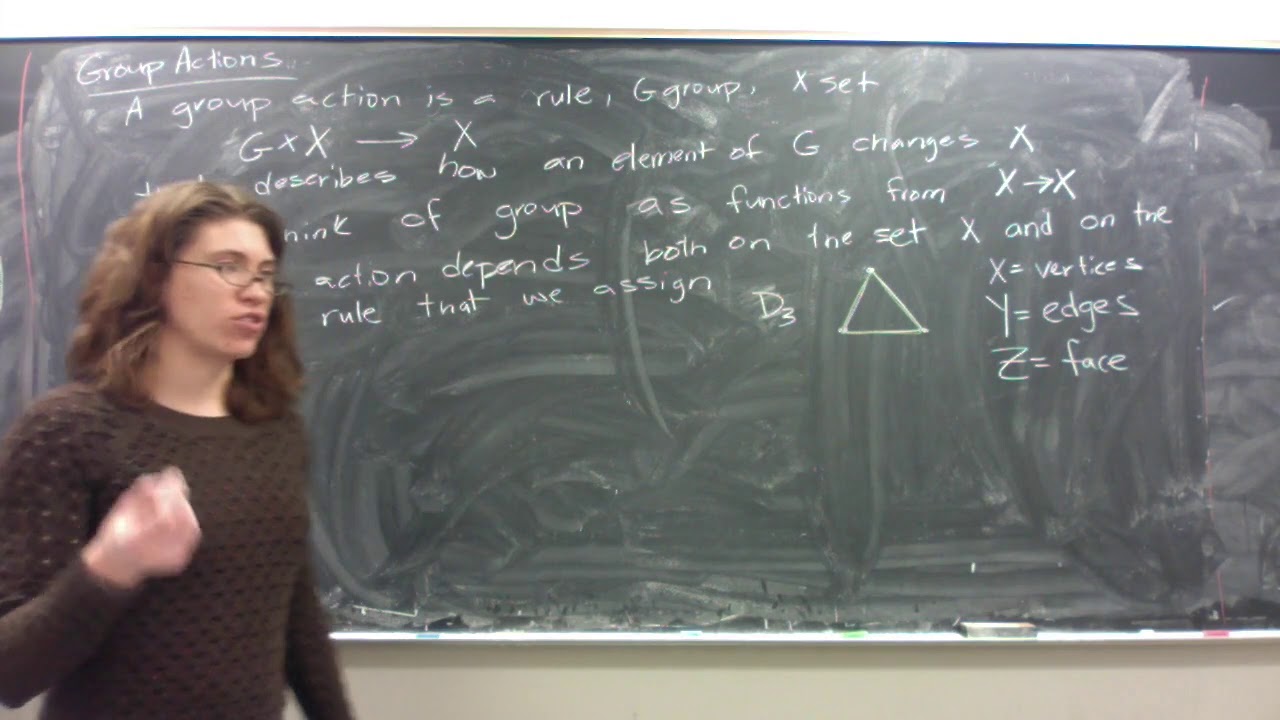 Group Actions
A group action is a rule, G group, X set
G × X → X
describes how an element of G changes X
of group as functions from X → X
action depends both on the set X and on the
rule that we assign
D₃
X = vertices
Y = edges
Z = face